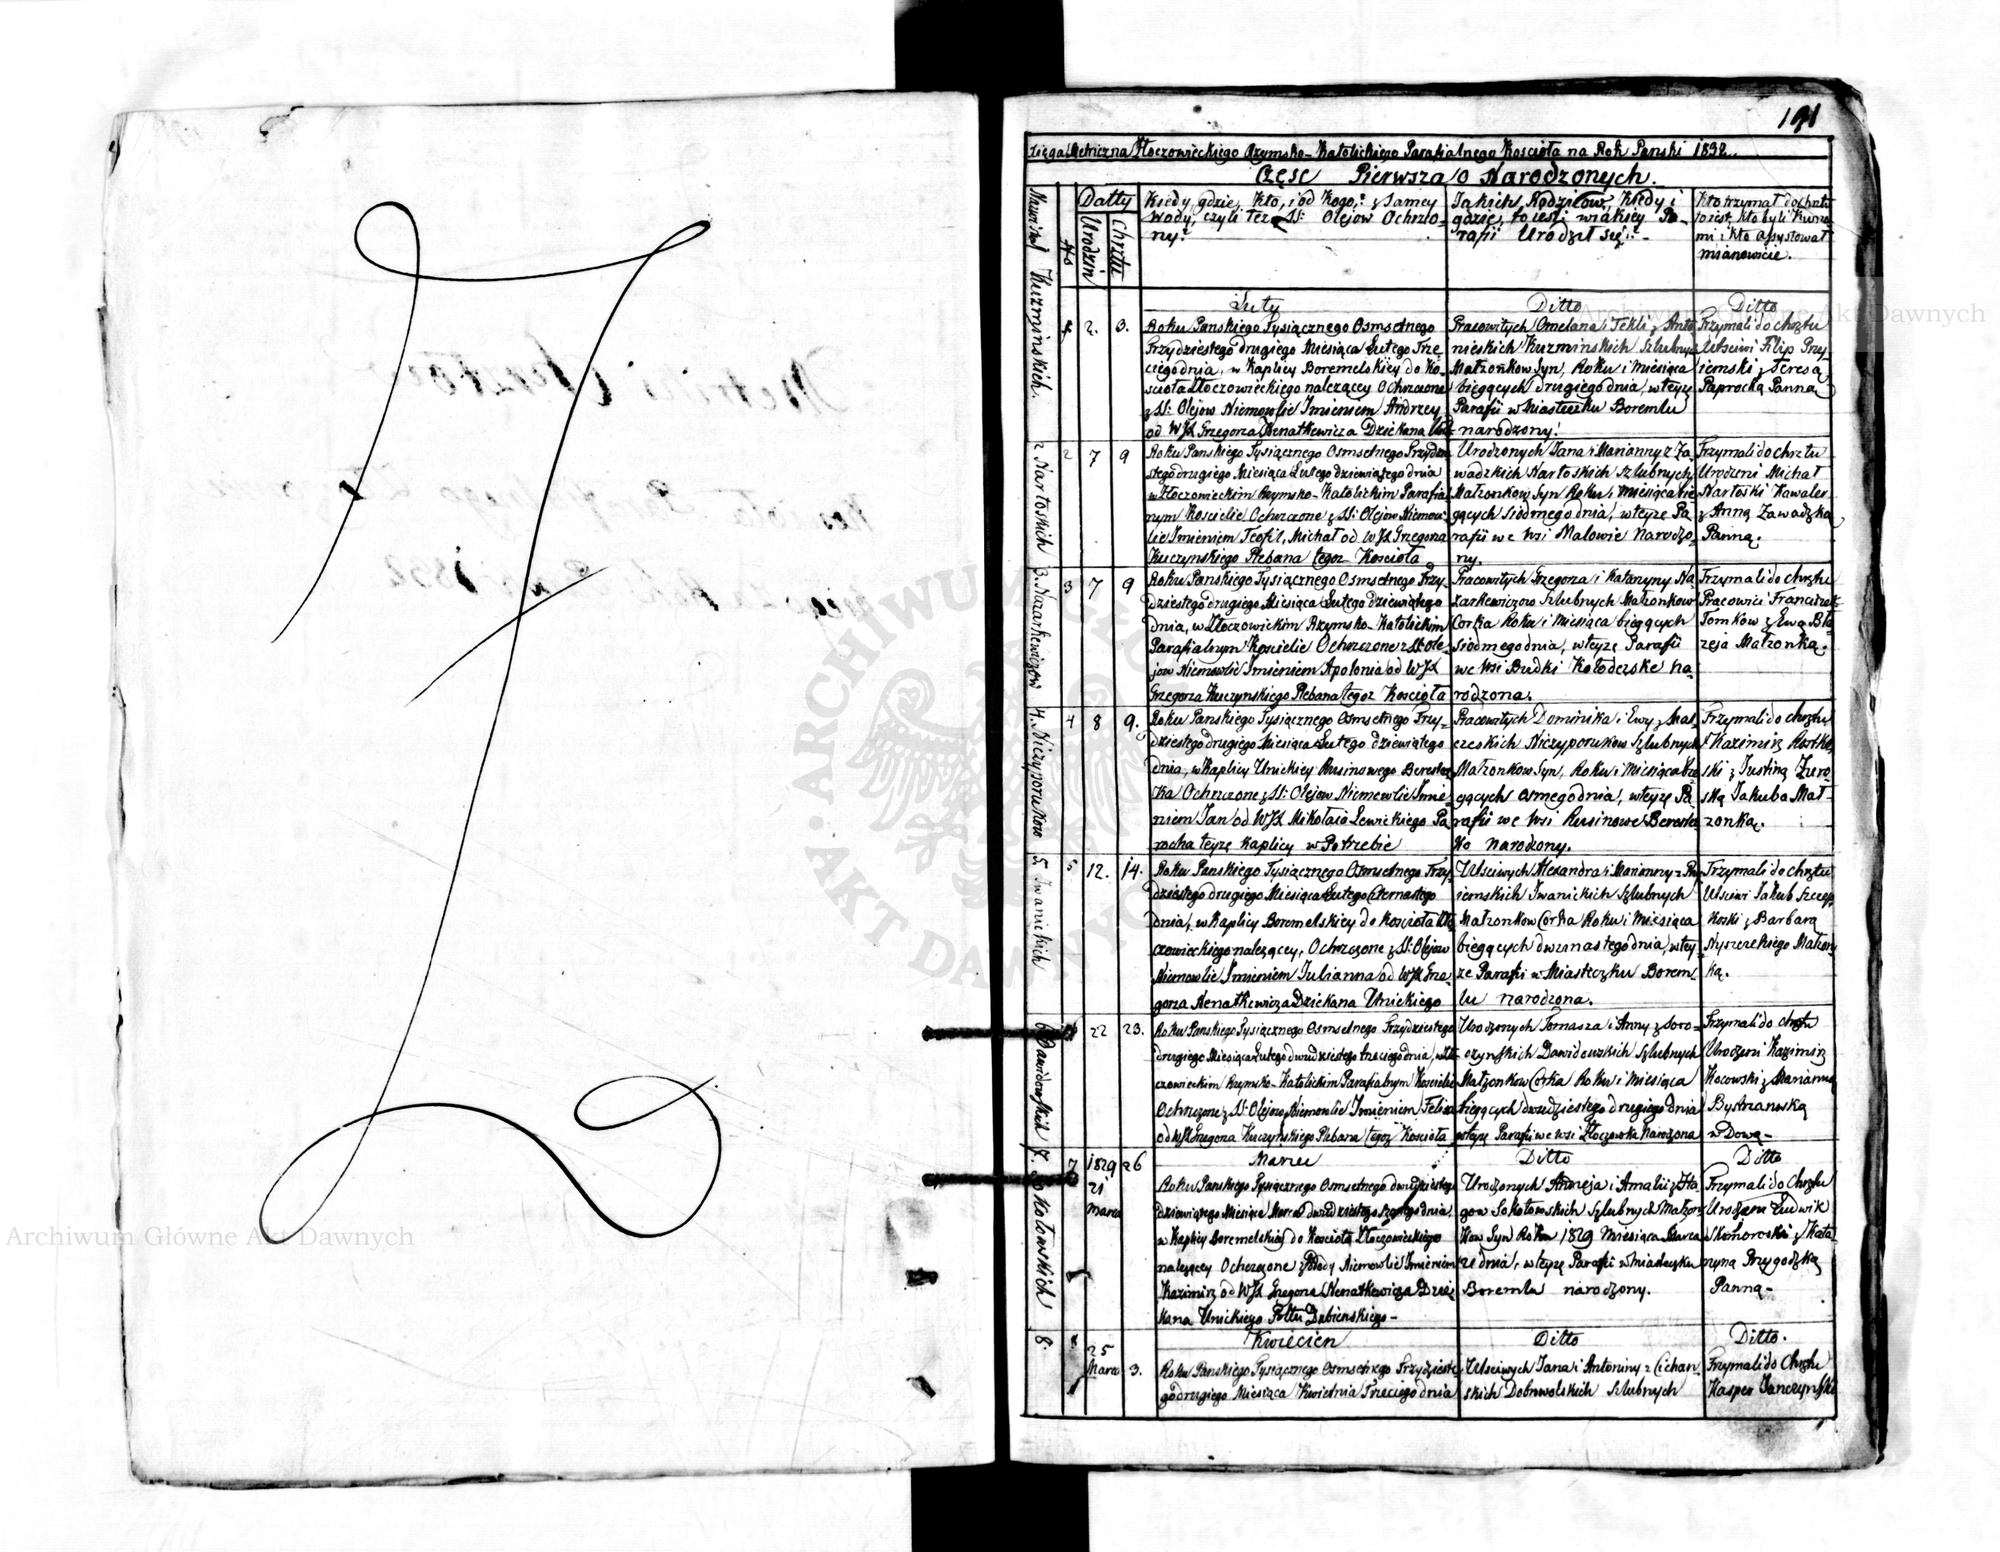 191
Xięga Metriczna Złoczowieckiego Rzymsko-Katolickiego Parafialnego Koscioła na Rok Panski 1832.
Częsc Pierwsza o Narodzonych.
Nazwisko
No
Datty
Urodzin
Chrztu
Kiedy, gdzie, Kto, i od Kogo,? z Samey
Wody, czyli też z SS: Olejow Ochrzczo-
ny?
Jakich Rodzicow, Kiedy i
gdzie, to iest: w iakiey Pa-
rafii Urodził się?-
Kto trzymał do chrztu
to iest, kto byli Kuma-
mi i kto assystował
mianowicie.
Luty
Ditto
Ditto
Kuzminskich.
1 2. 3.
Roku Panskiego Tysiącznego Osmsetnego
Trzydziestego drugiego Miesiąca Lutego Trze-
ciego dnia, w Kaplicy Boremelskiey do Ko-
scioła Złoczowieckiego należącey Ochrzczone
z SS: Olejow Niemowlie Imieniem Andrzey
od WJX Grzegorza Nenatkewicza Dziekana
Pracowitych Omelana i Tekli z Anto
nieskich Kuzminskich Szlubnych
Małżonkow Syn, Roku i Miesiąca
biegących drugiego dnia, w teyże
Parafii w Miasteczku Boremlu
narodzony!
Trzymali do chrztu
Usciwi Filip Przy-
iemski z Teresą
Paprocką Panną
2 Nartoskich
2 7 9
Roku Panskiego Tysiącznego Osmsetnego Trzydzie
stego drugiego Miesiąca Lutego dziewiątego dnia
w Złoczowieckim Rzymsko-Katolickim Parafia
nym Kosciele Ochrzczone z SS: Olejow Niemow
lie Imieniem Teofil, Michał od WJX Grzegorza
Kuczynskiego Plebana tegoż Koscioła
Urodzonych Jana i Marianny z Za
wadzkich Nartoskich Szlubnych
Małżonkow Syn Roku i Miesiąca bie
gących siodmego dnia, w teyże Pa
rafii we Wsi Malowie Narodzo
ny.
Trzymali do chrztu
Urodzeni Michał
Nartoski Kawaler
z Anną Zawadzką
Panną.
3. Nazarkewiczow
3 7 9
Roku Panskiego Tysiącznego Osmsetnego Trzy-
dziestego drugiego Miesiąca Lutego dziewiątego
dnia, w Złoczowieckim Rzymsko-Katolickim
Parafialnym Kosciele Ochrzczone z SS: Ole-
jow Niemowlie Imieniem Apolonia od WJX
Grzegorza Kuczynskiego Plebana tegoż Koscioła
Pracowitych Grzegorza i Katarzyny Na
zarkewiczow Szlubnych Małżonkow
Corka Roku i Miesiąca biegących
siodmego dnia, w teyże Parafii
we Wsi Budki Kołodezske na
rodzona.
Trzymali do chrztu
Pracowici Franciszek
Tomkow z Ewą Bła
zeja Małżonką.
4. Niczyporukow
4 8 9.
Roku Panskiego Tysiącznego Osmsetnego Trzy-
dziestego drugiego Miesiąca Lutego dziewiątego
dnia, w Kaplicy Unickiey Rusinowego Berestecz
ka Ochrzczone z SS: Olejow Niemowlie Imie-
niem Jan od WJX Mikołaia Lewickiego Pa
rocha teyże Kaplicy w Potrzebie
Pracowitych Dominika i Ewy z Mal
czeskich Niczyporukow Szlubnych
Małżonkow Syn, Roku i Miesiąca bie
gących osmego dnia, w teyże Pa
rafii we Wsi Rusinowe Berestecz
ko narodzony.
Trzymali do chrztu
Kazimirz Rostko
ski z Justiną Zuro-
ską Jakuba Mał-
żonką.
5. Iwanickich
5 12. 14.
Roku Panskiego Tysiącznego Osmsetnego Trzy
dziestego drugiego Miesiąca Lutego Czternastego
dnia, w Kaplicy Boremelskiey do Koscioła Zło
czowieckiego należącey, Ochrzczone z SS: Olejow
Niemowlie Imieniem Julianna od WJX Grze-
gorza Nenatkewicza Dziekana Unickiego
Usciwych Alexandra i Marianny z Prz
iemskich Iwanickich Szlubnych
Małżonkow Corka Roku i Miesiąca
biegących dwunastego dnia, w tey
że Parafii w Miasteczku Borem-
lu narodzona.
Trzymali do chrztu
Usciwi Jakub Szczep
koski z Barbarą
Nyszczekiego Małżon
ką.
6 Dawidowskich
6 22 23.
Roku Panskiego Tysiącznego Osmsetnego Trzydziestego
drugiego Miesiąca Lutego dwudziestego trzeciego dnia, w Zło
czowieckim Rzymsko-Katolickim Parafialnym Kosciele
Ochrzczone z SS: Olejow Niemowlie Imieniem Felixa
od WJX Grzegorza Kuczynskiego Plebana tegoż Koscioła
Urodzonych Tomasza i Anny z Soro-
czynskich Dawidowskich Szlubnych
Małżonkow Corka Roku i Miesiąca
biegących dwudziestego drugiego dnia
w teyże Parafii we Wsi Złoczowka Narodzona
Trzymali do chrztu
Urodzeni Kazimirz
Kocowski z Marianną
Bystrzanowską
w Dową-
7. Sokołowskich
7 1829 26
21
Marca
Marzec
Ditto
Ditto
Roku Panskiego Tysiącznego Osmsetnego dwudziestego
dziewiątego Miesiąca Marca dwudziestego szostego dnia
w Kaplicy Boremelskiey do Koscioła Złoczowieckiego
należącey Ochrzczone z Wody Niemowlie Imieniem
Kazimirz od WJX Grzegorza Nenatkewicza Dzie-
kana Unickiego Pottu Dubienskiego-
Urodzonych Andrzeja i Amalii z Ha
gow Sokołowskich Szlubnych Małżon
kow Syn Roku 1829 Miesiąca Marca
21 dnia, w teyże Parafii w Miasteczku
Boremlu narodzony.
Trzymali do Chrztu
Urodzeni Ludwik
Komoroski z Kata
rzyną Przygodzką
Panną-
8.
8 25
Marca 3.
Kwiecien
Ditto
Ditto.
Roku Panskiego Tysiącznego Osmsetnego Trzydzieste
go drugiego Miesiąca Kwietnia Trzeciego dnia
Usciwych Jana i Antoniny z Cichan-
skich Dobrwolskich Szlubnych
Trzymali do Chrztu
Kasper Janczynski
Archiwum Główne Akt Dawnych
Archiwum Główne Akt Dawnych
ARCHIWUM GŁÓWNE AKT DAWNYCH